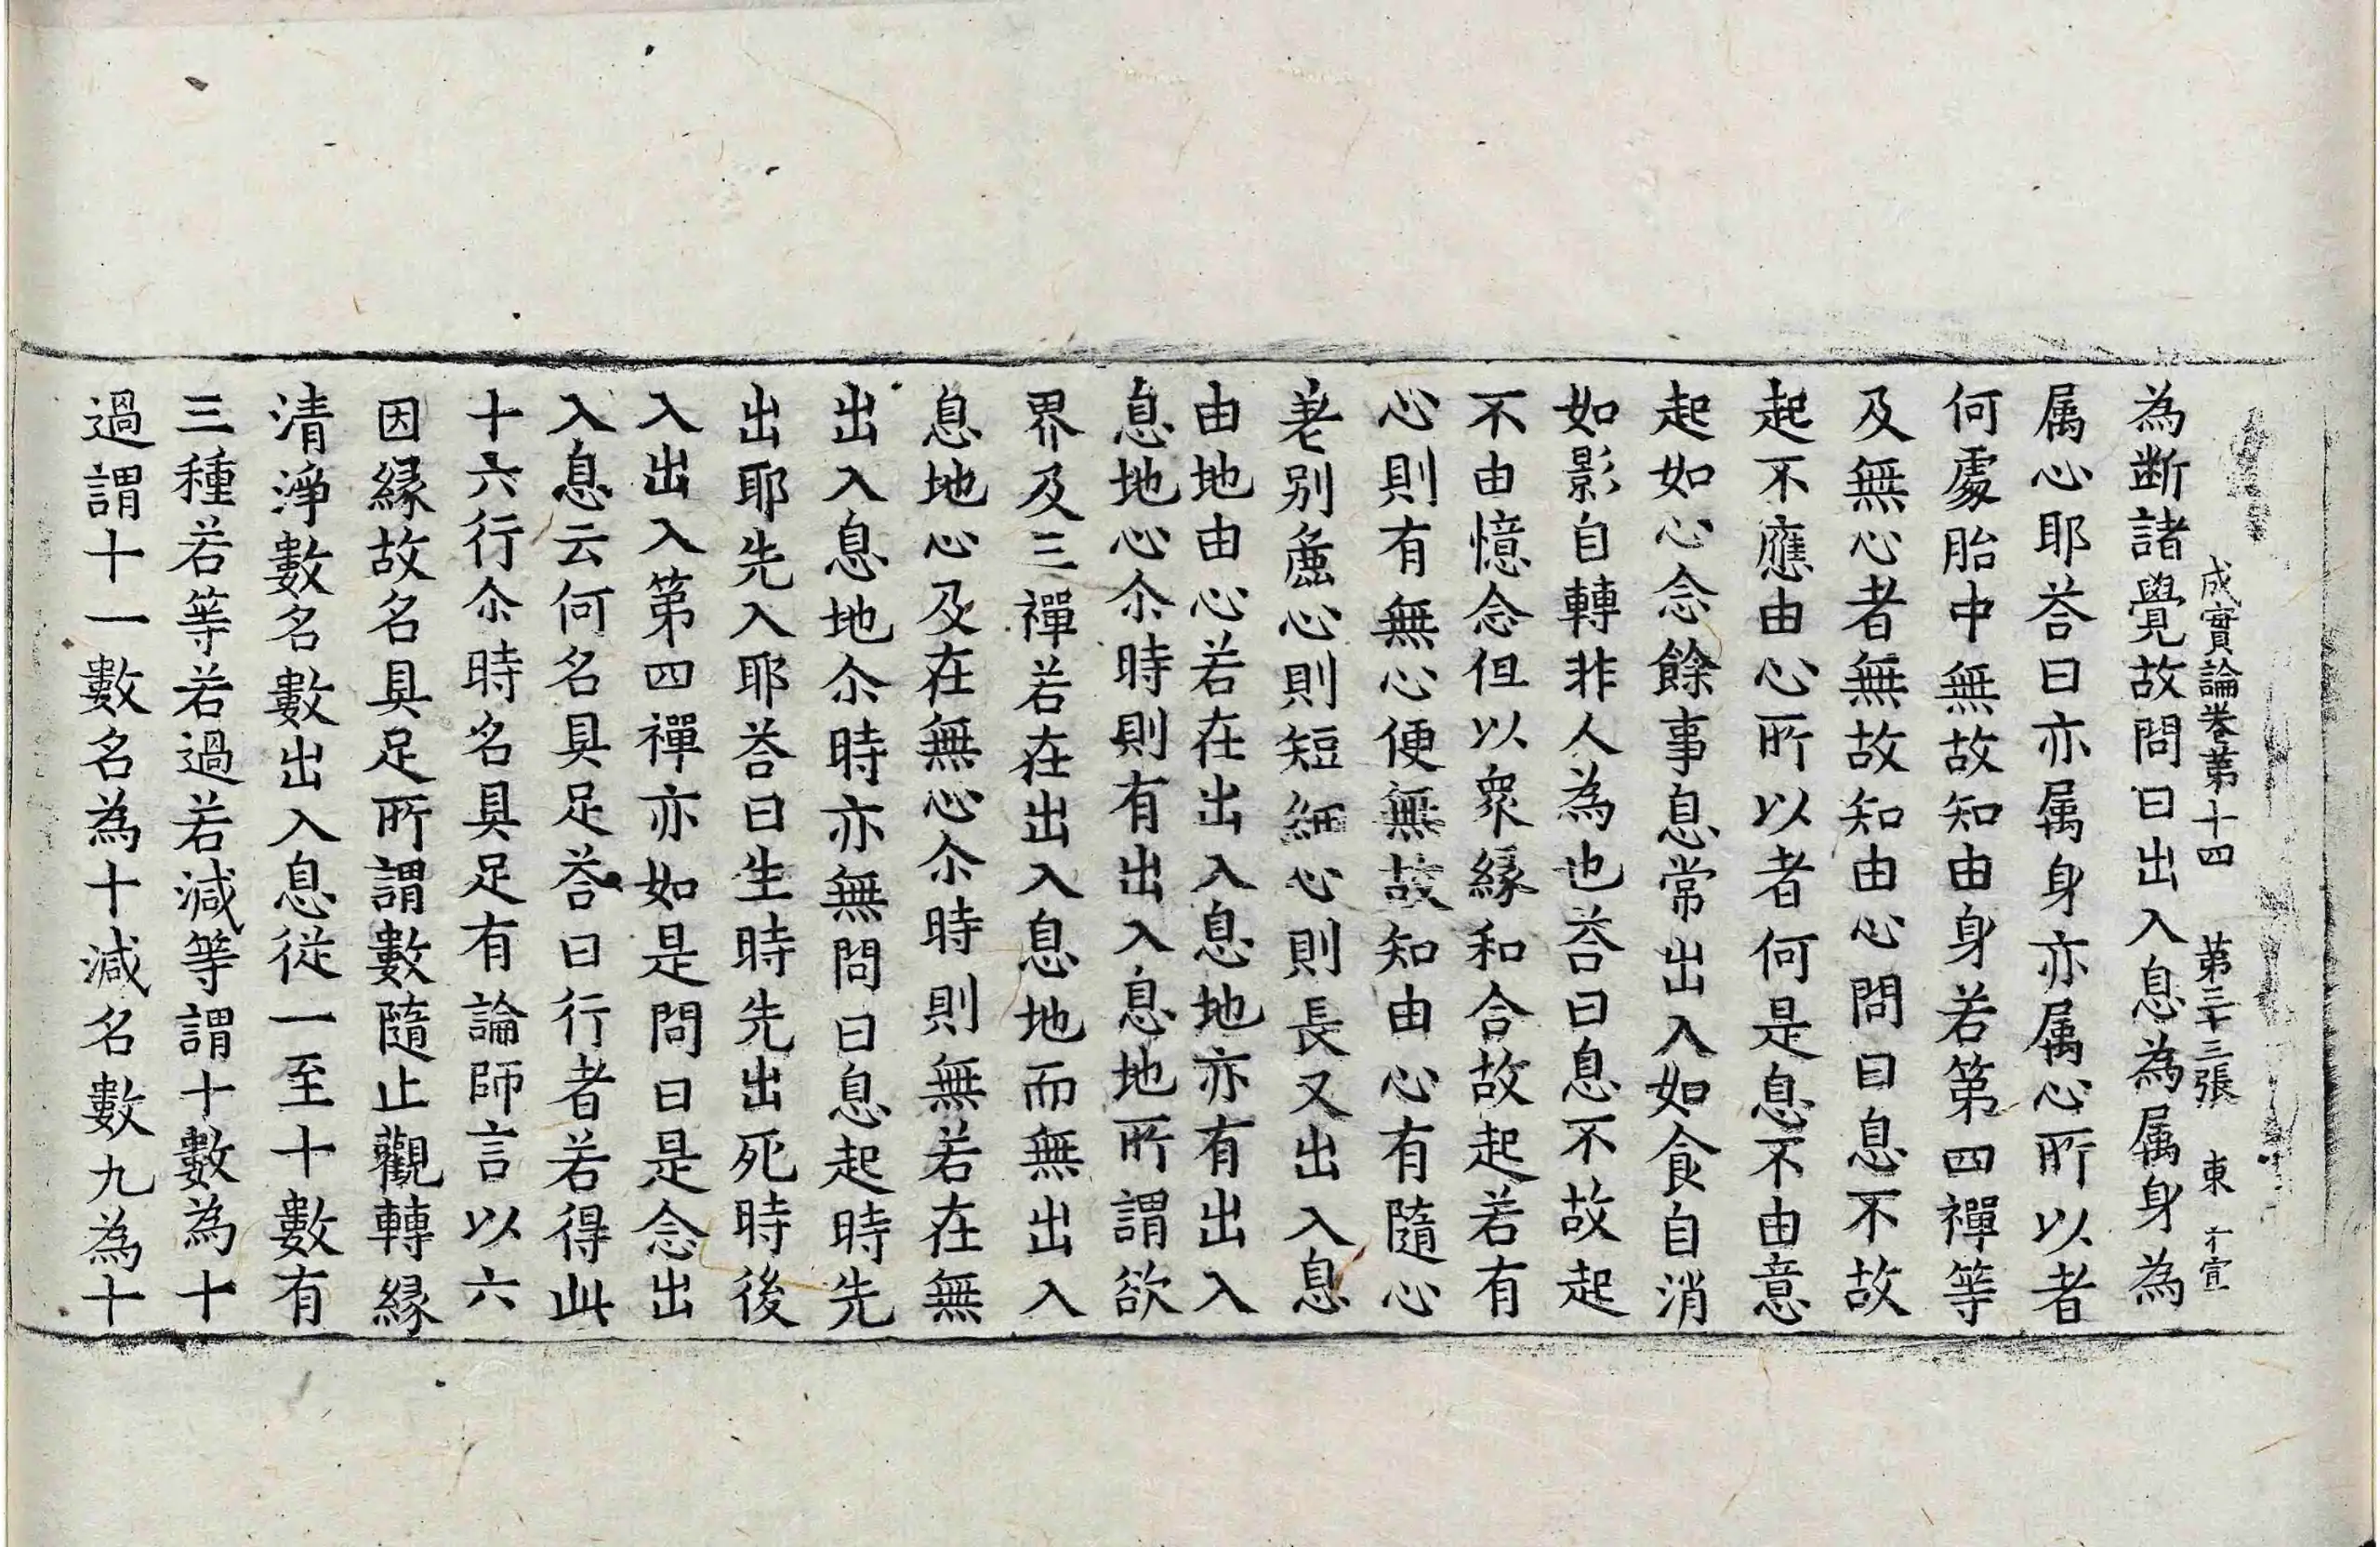 成實論卷第十四　第三十三張　東　才宣
為断諸覺故問曰出入息為属身為
属心耶荅曰亦属身亦属心所以者
何處胎中無故知由身若第四禪等
及無心者無故知由心問曰息不故
起不應由心所以者何是息不由意
起如心念餘事息常出入如食自消
如影自轉非人為也荅曰息不故起
不由憶念但以衆緣和合故起若有
心則有無心便無故知由心有隨心
差別麁心則短細心則長又出入息
由地由心若在出入息地亦有出入
息地心尒時則有出入息地所謂欲
界及三禪若在出入息地而無出入
息地心及在無心尒時則無若在無
出入息地尒時亦無問曰息起時先
出耶先入耶荅曰生時先出死時後
入出入第四禪亦如是問曰是念出
入息云何名具足荅曰行者若得此
十六行尒時名具足有論師言以六
因緣故名具足所謂數隨止觀轉緣
清淨數名數出入息從一至十數有
三種若等若過若減等謂十數為十
過謂十一數名為十減名數九為十